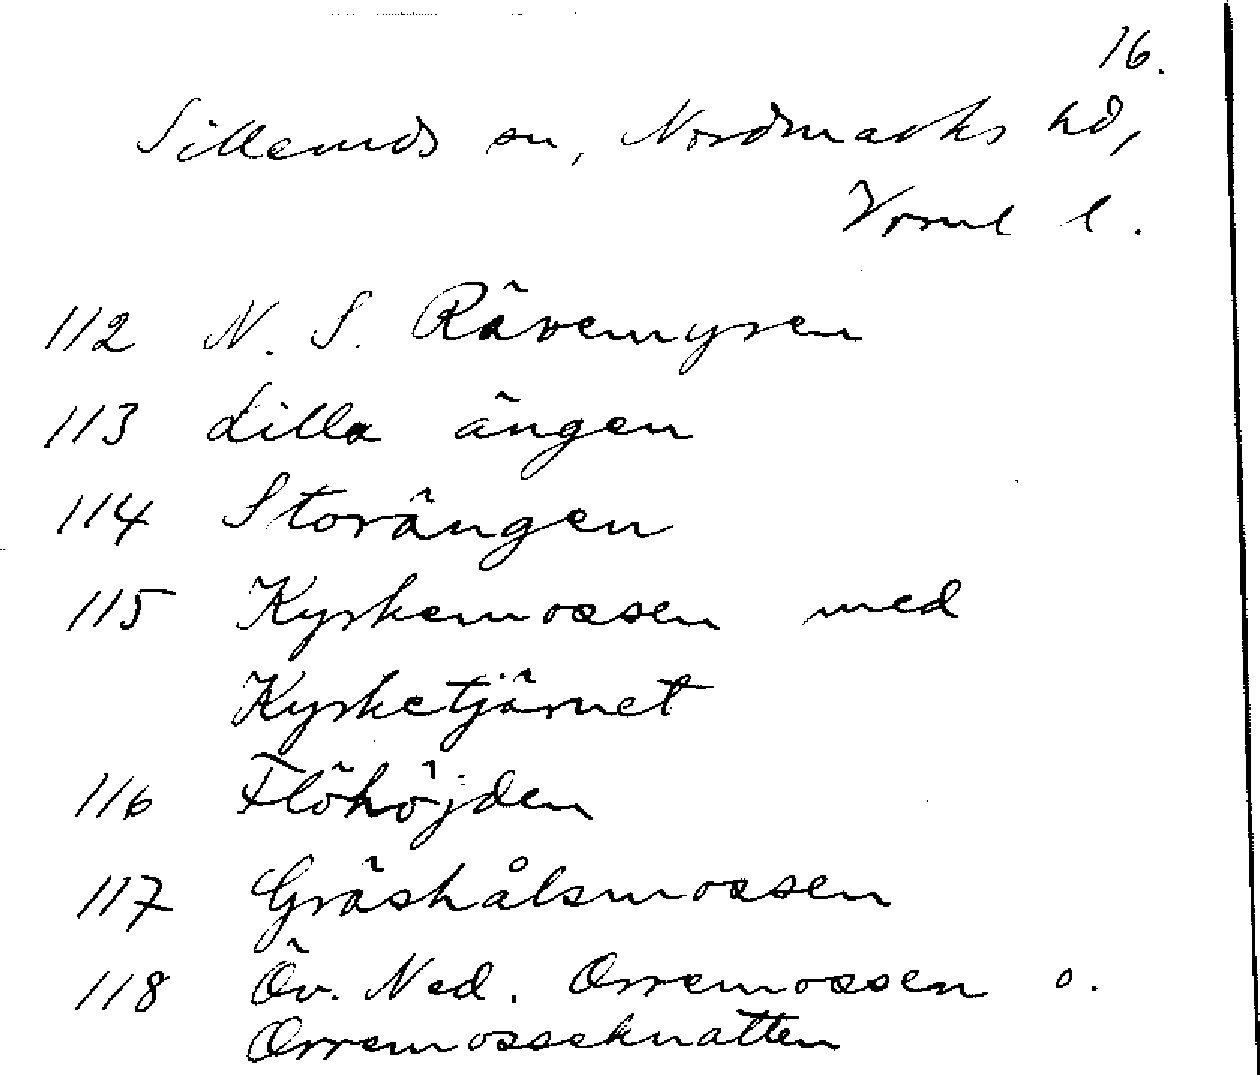 16.
Silleruds sn, Nordmarks hd,
Vrml l.
112 N. S. Rävemyren
113 Lilla ängen
114 Storängen
115 Kyrkemossen med
Kyrketjärnet
116 Flöhöjden
117 Gräshålsmossen
118 Öv. Ned. Orremossen o.
Orremosseknatten